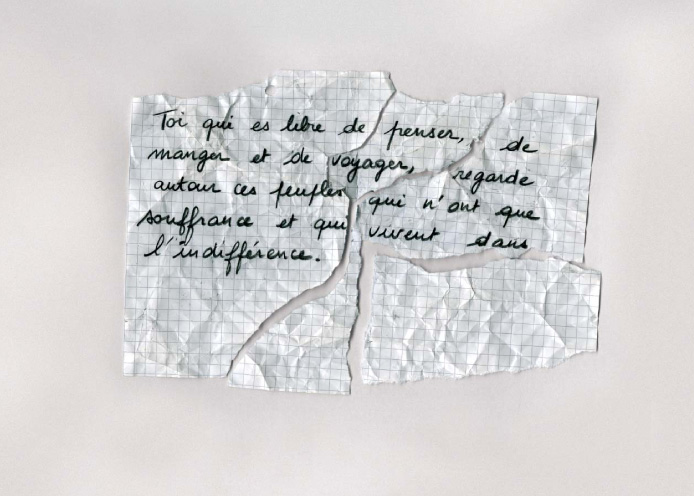 Toi qui es libre de penser, de
manger et de voyager, regarde
autour ces peuples qui n'ont que
souffrance et qui vivent dans
l'indifférence.